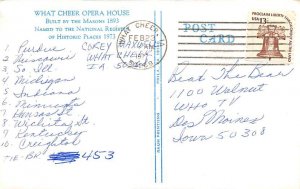 WHAT CHEER OPERA HOUSE
BUILT BY THE MASONS 1893
NAMED TO THE NATIONAL REGISTER
OF HISTORIC PLACES 1973
1 Purdue
2 Missouri
3 So Ill
4 Michigan
5 Indiana
6 Minnesota
7 Kansas St
8 Wichita St
9 Kentucky
10 Creighton
TIE-BK 453
COREY
WHAT CHEER
IA
WHAT CHEER, IA
FEB 23
POST
CARD
13c
Beat The Bear
1100 Walnut
WHO TV
Des Moines
Iowa 50308